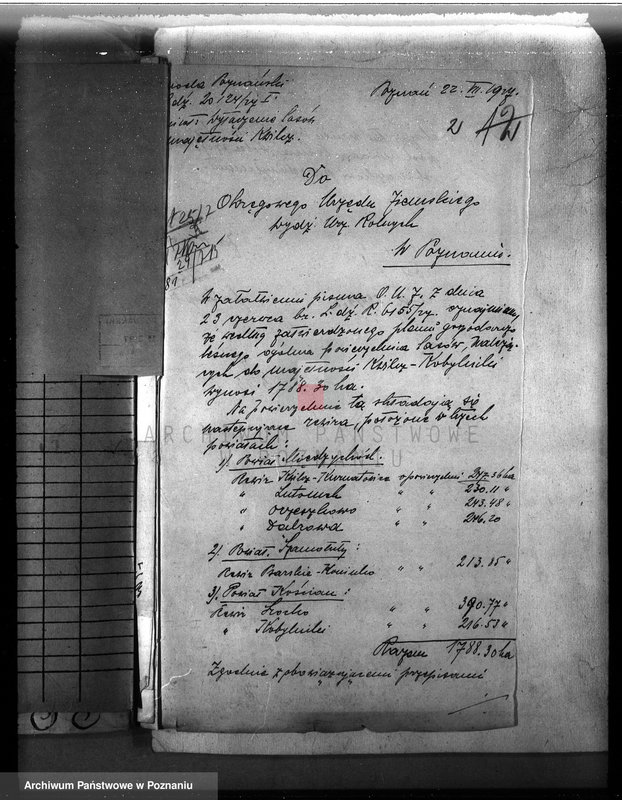 Poznański
L.dz. 20/24/27 I.
Wyłączenie lasów
majętności Kwilcz.
Poznań 22. VII. 1927.
2
42
Do
Okręgowego Urzędu Ziemskiego
Wydz. Urz. Rolnych
w Poznaniu.
W załatwieniu pisma O.U.Z. z dnia
23 czerwca br. L.dz. R. 6155/27. oznajmiamy
że według zatwierdzonego planu gospodarczego
leśnego ogólna powierzchnia lasów, należą-
cych do majętności Kwilcz-Kobylniki
wynosi 1788.30 ha.
Na powierzchnię tą składają się
następujące rewira, położone w trzech
powiatach:
1/ Powiat Międzychód.
Rewir Kwilcz-Kurnatowice o powierzchni 247.36 ha
" Lutomek " " 230.11 "
" Orzeszkowo " " 243.48 "
" Dąbrowa " " 246.20
2/. Powiat Szamotuły:
Rewir " " 213.85 "
3/. Powiat Kościan:
Rewir " " 390.77 "
" Kobylniki " " 216.53 "
Razem 1788.30 ha
Zgodnie z obowiązującemi przepisami
ARCHIWUM PAŃSTWOWE
W POZNANIU
Archiwum Państwowe w Poznaniu